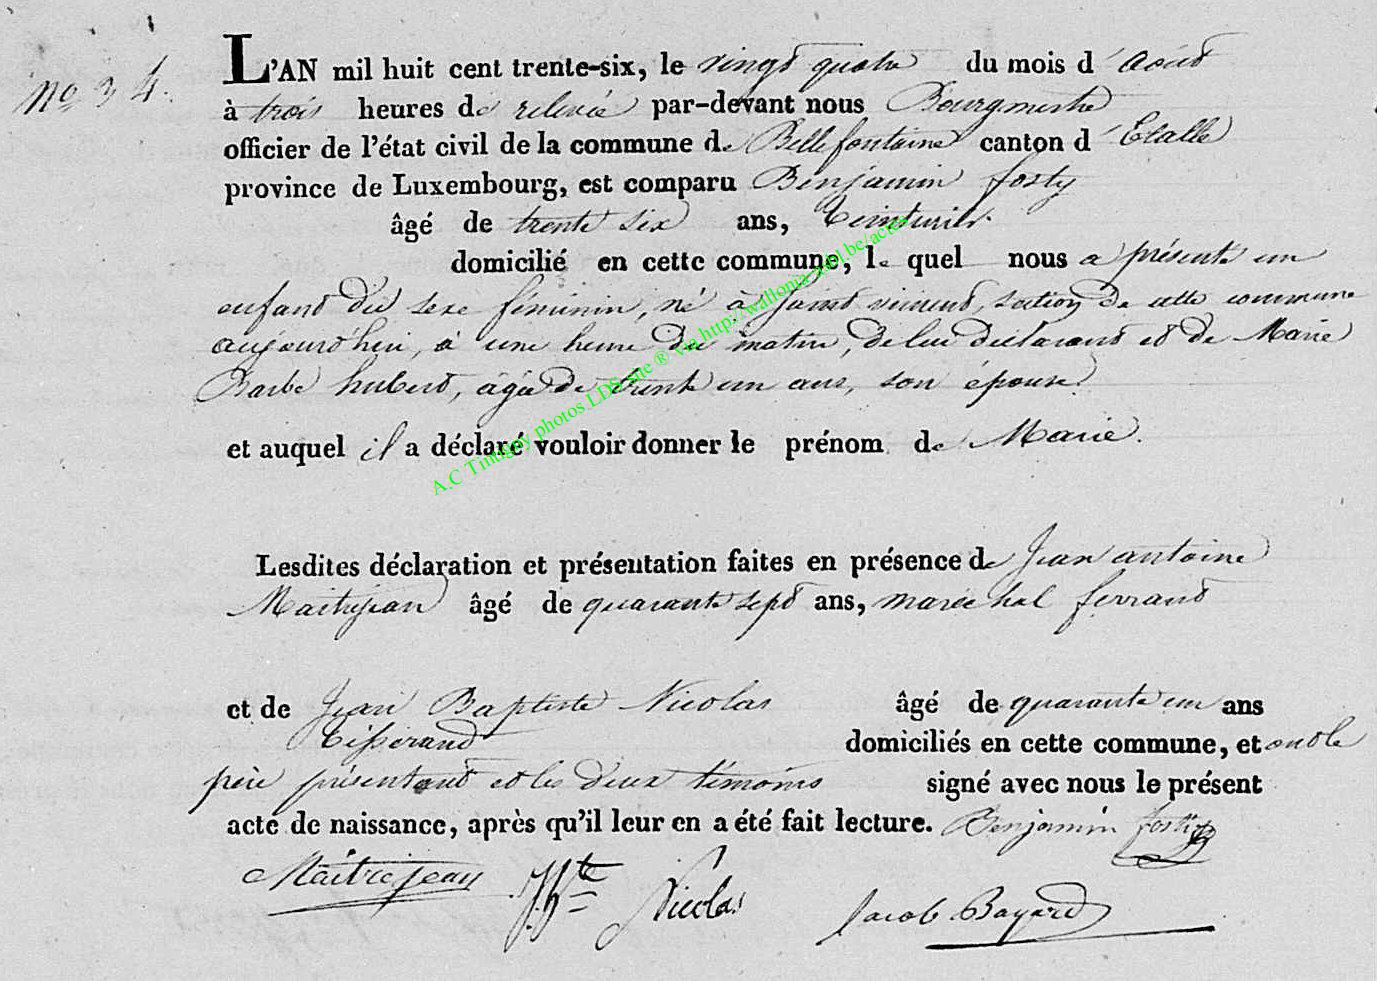 No 34.
L'AN mil huit cent trente-six, le vingt quatre du mois d'août
à trois heures de relevée par-devant nous Bourgmestre
officier de l'état civil de la commune de Bellefontaine canton d'Etalle
province de Luxembourg, est comparu Benjamin fosty
âgé de trente six ans, teinturier.
domicilié en cette commune, le quel nous a présenté un
enfant du sexe féminin, né à Saint vincent, section de cette commune
aujourd'hui, à une heure du matin, de lui déclarant et de Marie
Barbe hubert, âgée de trente un ans, son épouse
et auquel il a déclaré vouloir donner le prénom de Marie.
A.C Tintigny photos LDS site ® via http://wallonia-asbl.be/actes
Lesdites déclaration et présentation faites en présence de Jean antoine
Maitrejean âgé de quarante sept ans, maréchal ferrant
et de Jean Baptiste Nicolas âgé de quarante un ans
tisserand domiciliés en cette commune, et ont le
père présentant et les deux témoins signé avec nous le présent
acte de naissance, après qu'il leur en a été fait lecture. Benjamin fosty
Maitrejean J.Bte Nicolas Jacob Bayard